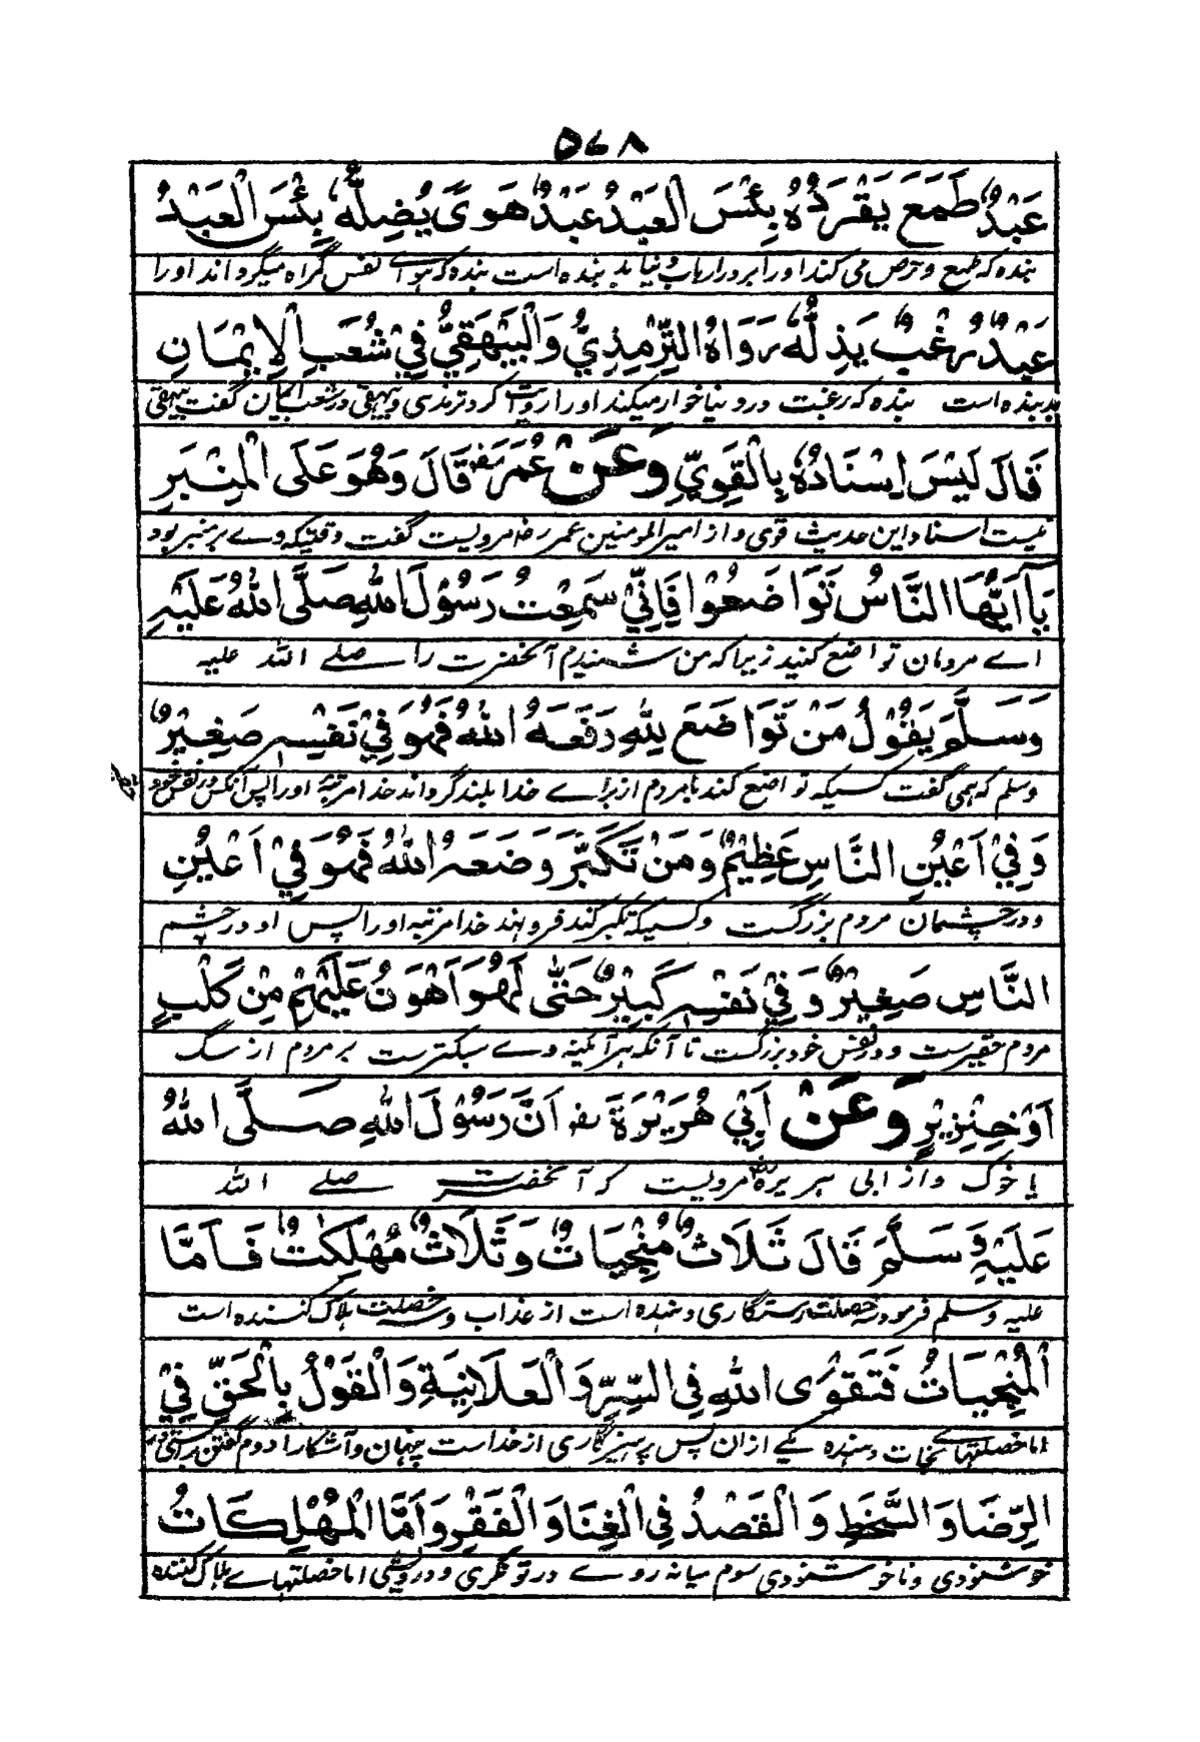 ۵۶۸
عَبْدٌ طَمَعَ يَقْرَدُهُ بِئْسَ الْعَبْدُ عَبْدٌ هَوًى يُضِلُّهٗ بِئْسَ الْعَبْدُ
بنده که طمع و حرص می کند او را بنده است بنده که هوائے نفس گمراه میگرداند او را
عَبْدٌ رُغْبٌ يَذِلُّهٗ رَوَاهُ التِّرْمِذِيُّ وَالْبَيْهَقِيُّ فِيْ شُعَبِ الْاِيْمَانِ
بد بنده است بنده که رغبت در دنیا خوار میکند او را روایت کرد ترمذی و بیهقی در شعب ایمان گفت بیهقی
قَالَ لَيْسَ اِسْنَادُهٗ بِالْقَوِيِّ وَعَنْ عُمَرَ رضـ قَالَ وَهُوَ عَلَى الْمِنْبَرِ
نیست اسناد این حدیث قوی و از امیر المومنین عمر رضـ مرویست گفت وقتیکه وے بر منبر بود
يَآ اَيُّهَا النَّاسُ تَوَاضَعُوْا فَاِنِّيْ سَمِعْتُ رَسُوْلَ اللهِ صَلَّى اللهُ عَلَيْهِ
اے مردمان تواضع کنید زیرا که من شنیدم آنحضرت را صلے الله علیه
وَسَلَّمَ يَقُوْلُ مَنْ تَوَاضَعَ لِلّٰهِ رَفَعَهُ اللهُ فَهُوَ فِيْ نَفْسِهٖ صَغِيْرٌ
وسلم که همی گفت کسیکه تواضع کند با مردم از براے خدا بلند گرداند خدا مرتبۀ او را پس آنکس در نفس خود
وَفِيْ اَعْيُنِ النَّاسِ عَظِيْمٌ وَمَنْ تَكَبَّرَ وَضَعَهُ اللهُ فَهُوَ فِيْ اَعْيُنِ
و در چشمان مردم بزرگست و کسیکه تکبر کند فرو نهد خدا مرتبه او را پس او در چشم
النَّاسِ صَغِيْرٌ وَفِيْ نَفْسِهٖ كَبِيْرٌ حَتّٰى لَهُوَ اَهْوَنُ عَلَيْهِمْ مِنْ كَلْبٍ
مردم حقیرست و در نفس خود بزرگست تا آنکه هر آئینه وے سبکترست بر مردم از سگ
اَوْ خِنْزِيْرٍ وَعَنْ اَبِيْ هُرَيْرَةَ رضـ اَنَّ رَسُوْلَ اللهِ صَلَّى اللهُ
یا خوک و از ابی هریره رضـ مرویست که آنحضرت صلے الله
عَلَيْهِ وَسَلَّمَ قَالَ ثَلَاثٌ مُنْجِيَاتٌ وَثَلَاثٌ مُهْلِكٰتٌ فَاَمَّا
علیه وسلم فرمود سه خصلت رستگاری دهنده است از عذاب و سه خصلت هلاک کننده است
الْمُنْجِيَاتُ فَتَقْوَى اللهِ فِي السِّرِّ وَالْعَلَانِيَةِ وَالْقَوْلُ بِالْحَقِّ فِيْ
اما خصلتهاے نجات دهنده یکے ازان پس پرهیزگاری از خداست پنهان و آشکارا دوم گفتن براستی در
الرِّضَا وَالسَّخَطِ وَالْقَصْدُ فِي الْغِنَا وَالْفَقْرِ وَاَمَّا الْمُهْلِكَاتُ
خوشنودی و ناخوشنودی سوم میانه روے در توانگری و درویشی اما خصلتهاے هلاک کننده